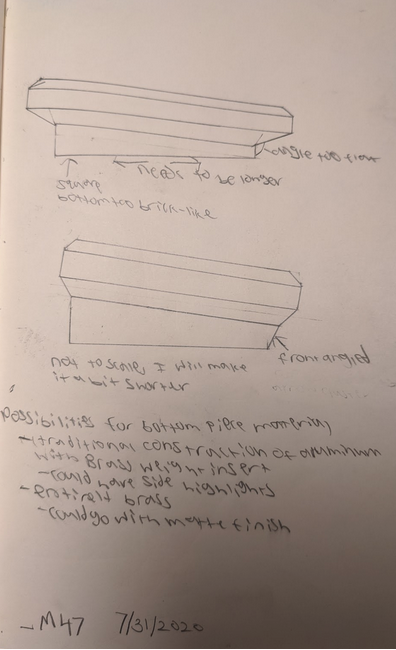 angle too flat
needs to be longer
square
bottom too brick-like
not to scale, I will make
it a bit shorter
front angled
Possibilities for bottom piece material
- traditional construction of aluminum
with Brass weight insert
- could have side highlights
- entirely brass
- could go with matte finish
- M47 7/31/2020